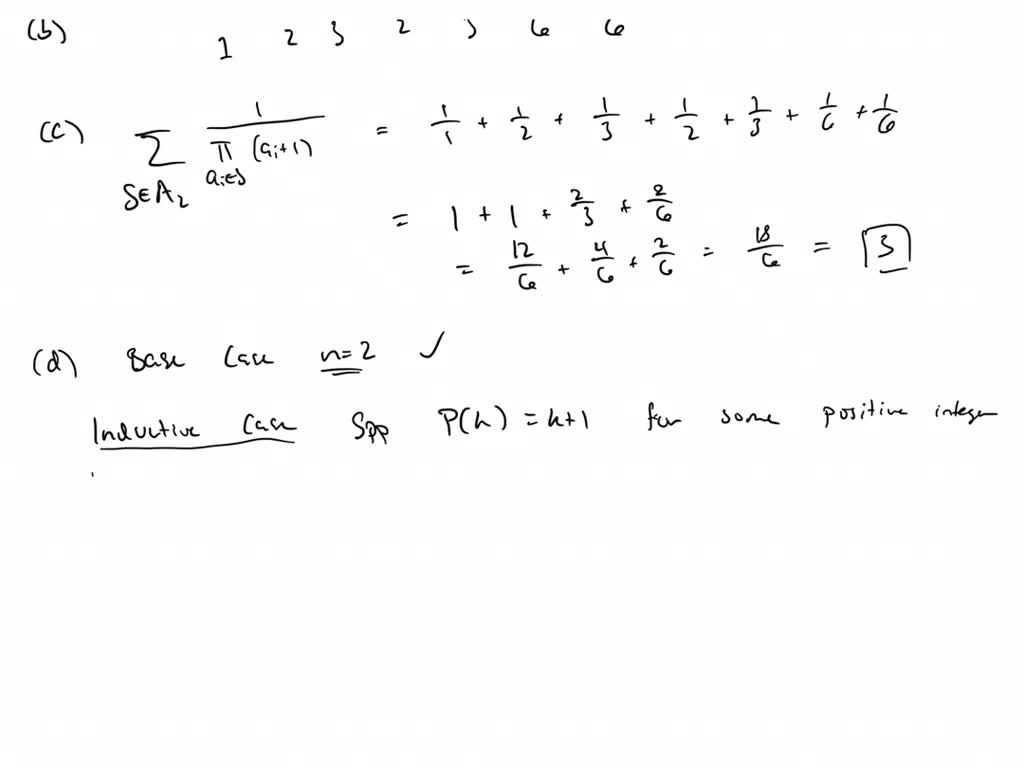 (b) 1 2 3 2 3 6 6
(c) ∑_{S∈A_2} 1/∏_{a_i∈S} (a_i+1) = 1/1 + 1/2 + 1/3 + 1/2 + 1/3 + 1/6 + 1/6
= 1 + 1 + 2/3 + 2/6
= 12/6 + 4/6 + 2/6 = 18/6 = 3
(d) Base Case n=2 ✓
Inductive Case Spp P(k) = k+1 for some positive integer